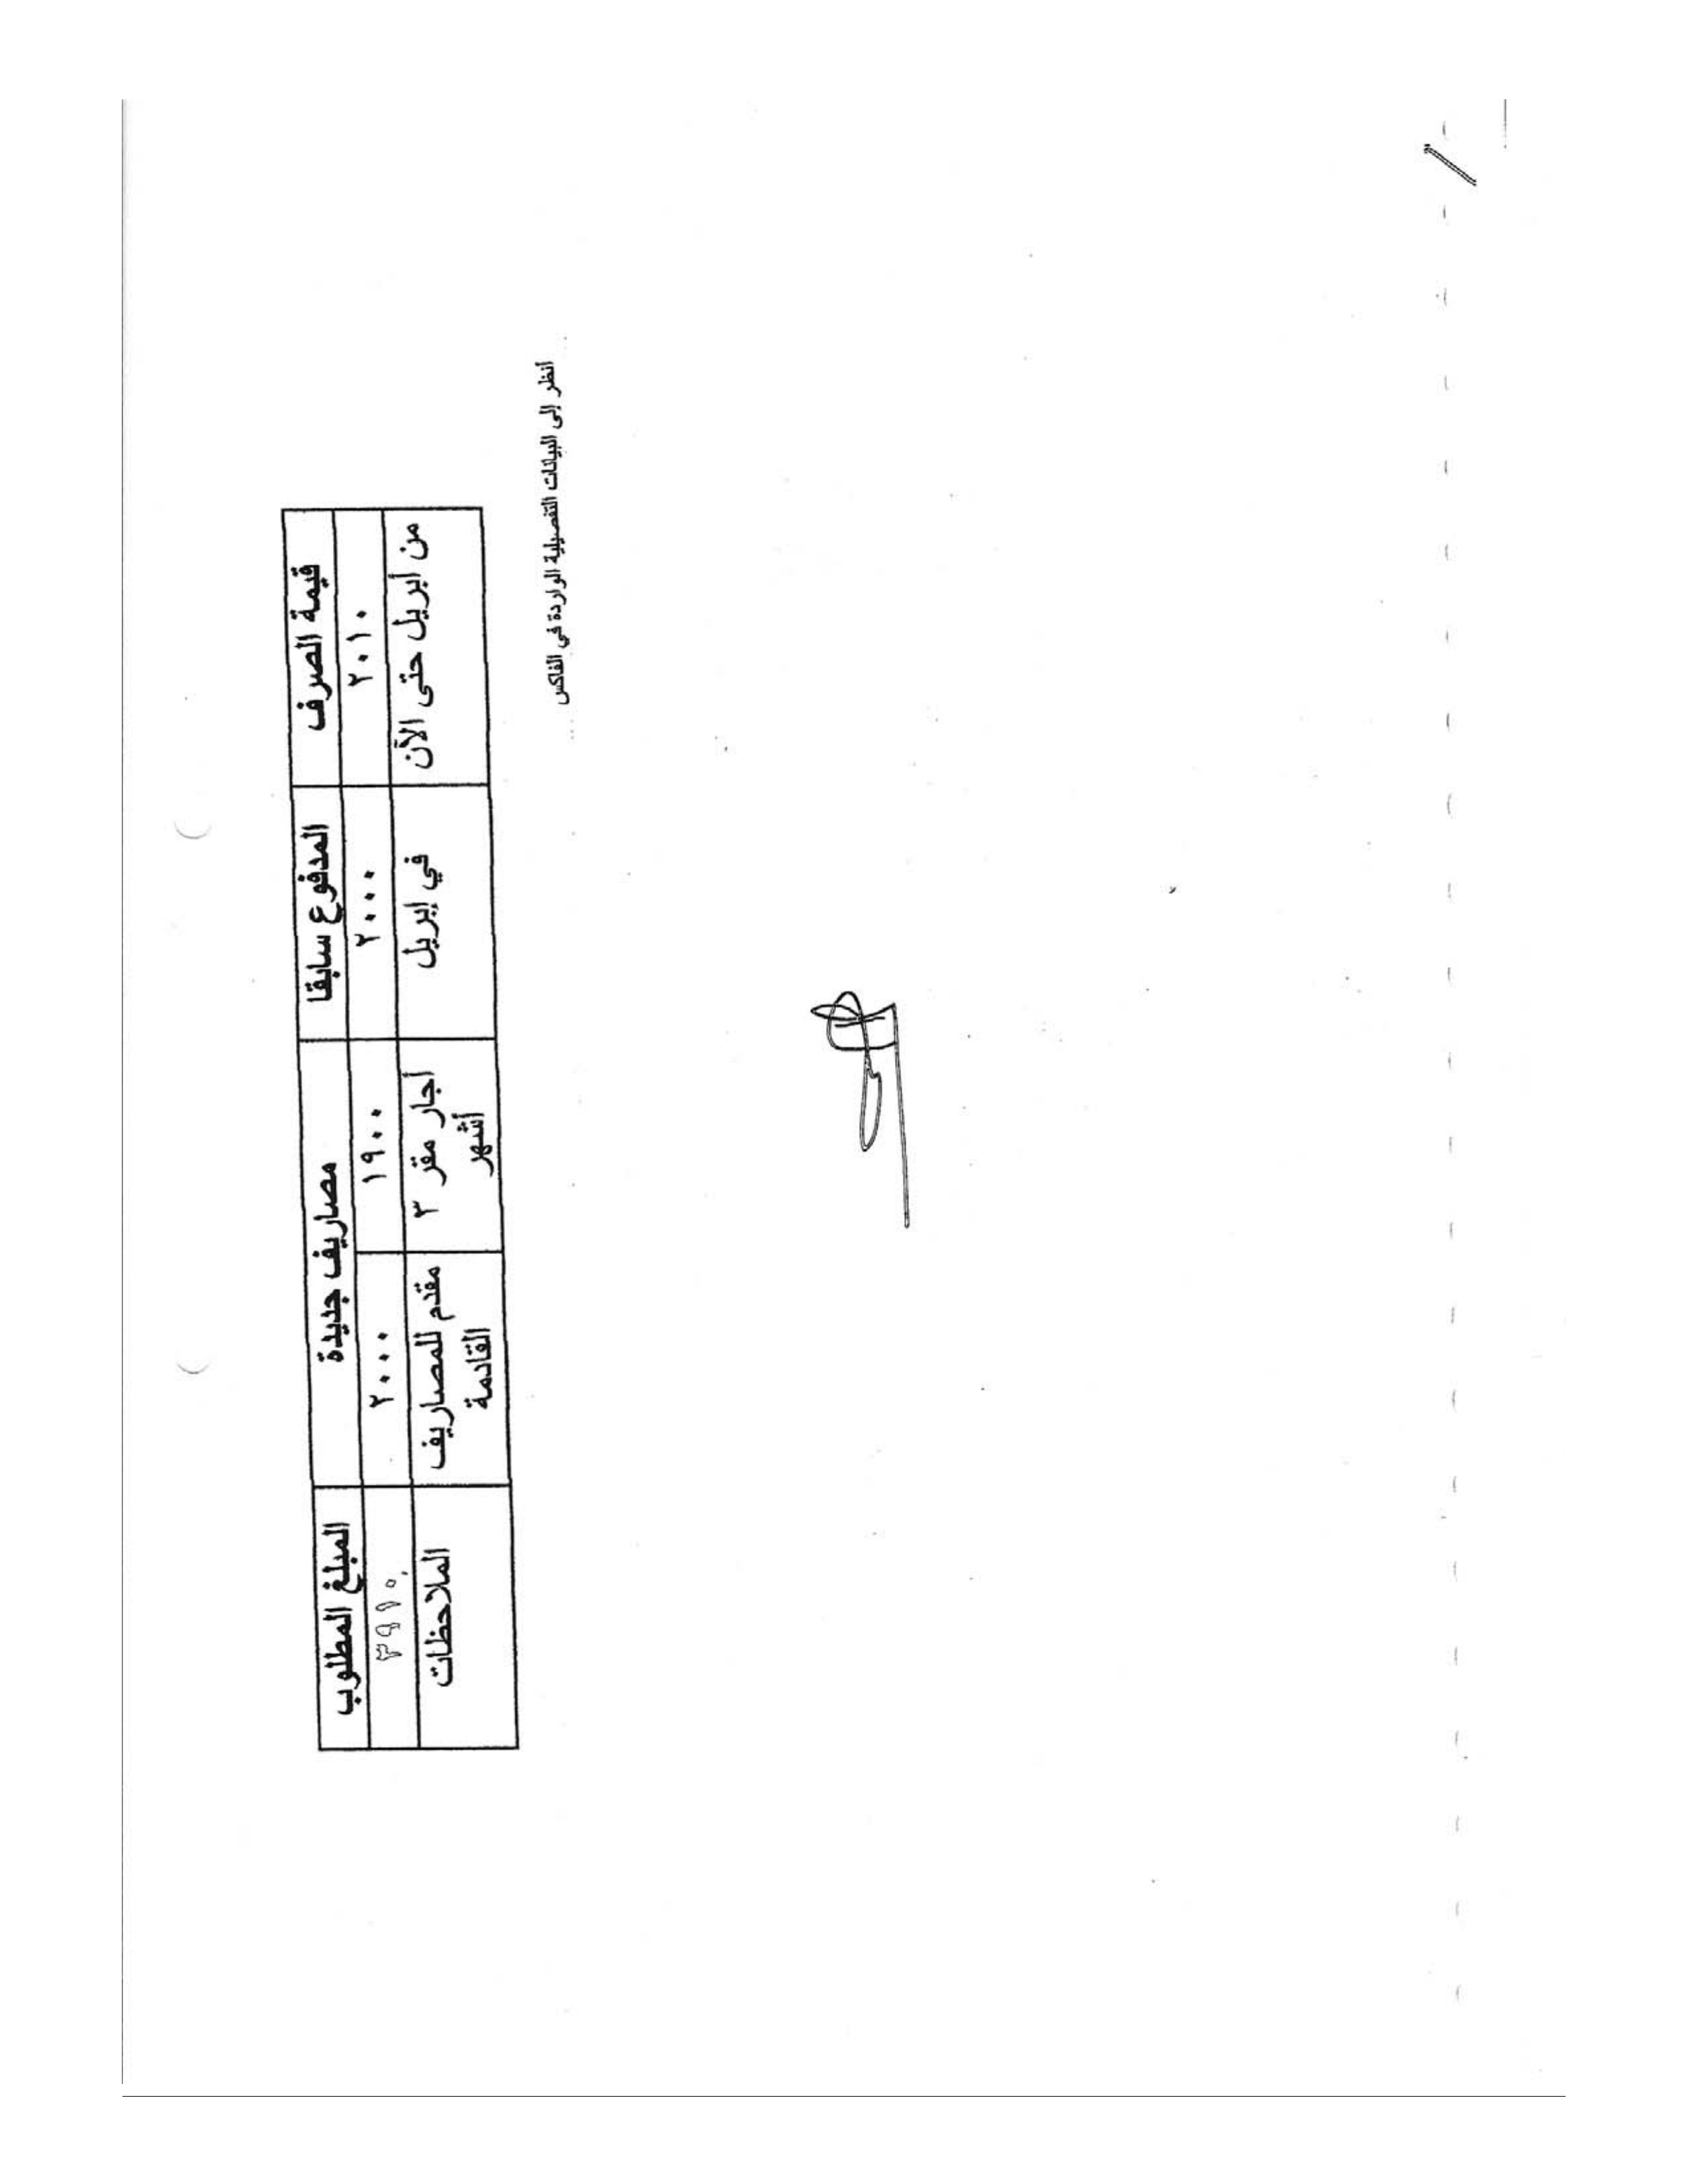 قيمة الصرف	المدفوع سابقا	مصاريف جديدة	المبلغ المطلوب
٢٠١٠	٢٠٠٠	١٩٠٠	٢٠٠٠	٣٩١٠
من أبريل حتى الآن	في إبريل	أجار مقر ٣ أشهر	مقدم للمصاريف القادمة	الملاحظات
أنظر إلى البيانات التفصيلية الواردة في الفاكس